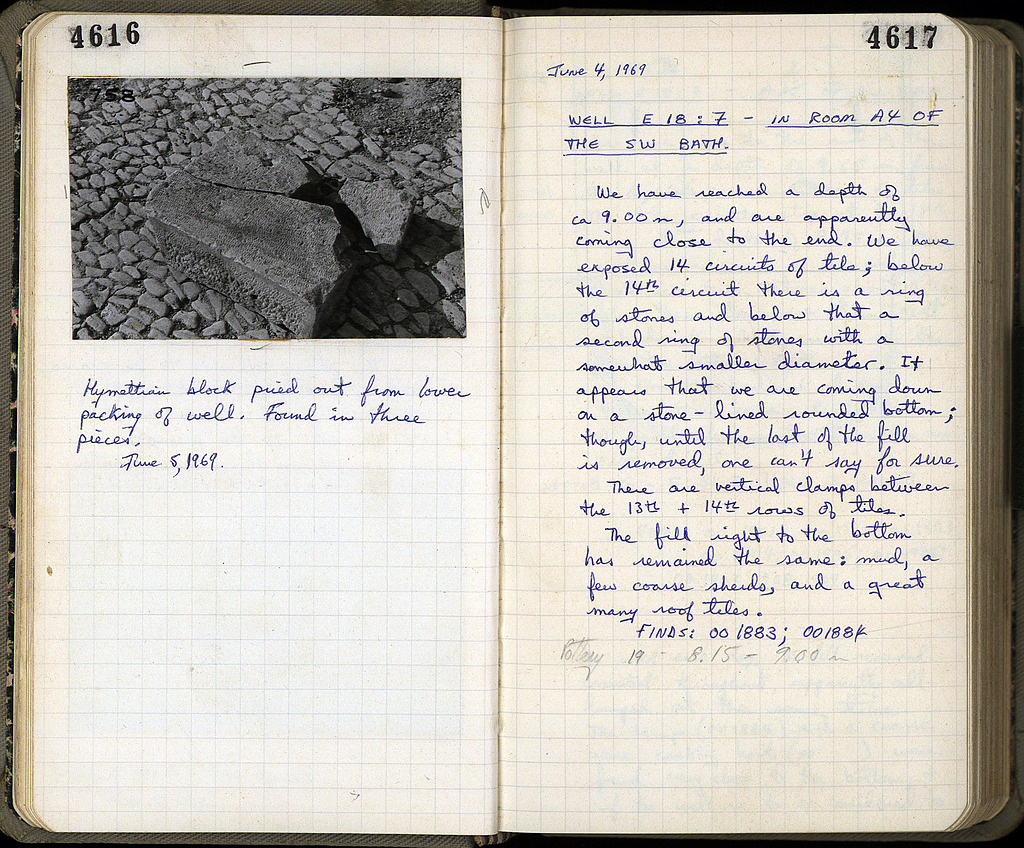 4616
758
Hymettian block pried out from lower
packing of well. Found in three
pieces.
June 5, 1969.
4617
June 4, 1969
WELL E 18 : 7 - IN ROOM A4 OF
THE SW BATH.
We have reached a depth of
ca 9.00 m, and are apparently
coming close to the end. We have
exposed 14 circuits of tile; below
the 14th circuit there is a ring
of stones and below that a
second ring of stones with a
somewhat smaller diameter. It
appears that we are coming down
on a stone-lined rounded bottom;
though, until the last of the fill
is removed, one can't say for sure.
There are vertical clamps between
the 13th + 14th rows of tiles.
The fill right to the bottom
has remained the same: mud, a
few coarse sherds, and a great
many roof tiles.
FINDS: OO 1883; OO1884
Pottery 19 - 8.15 - 9.00 m